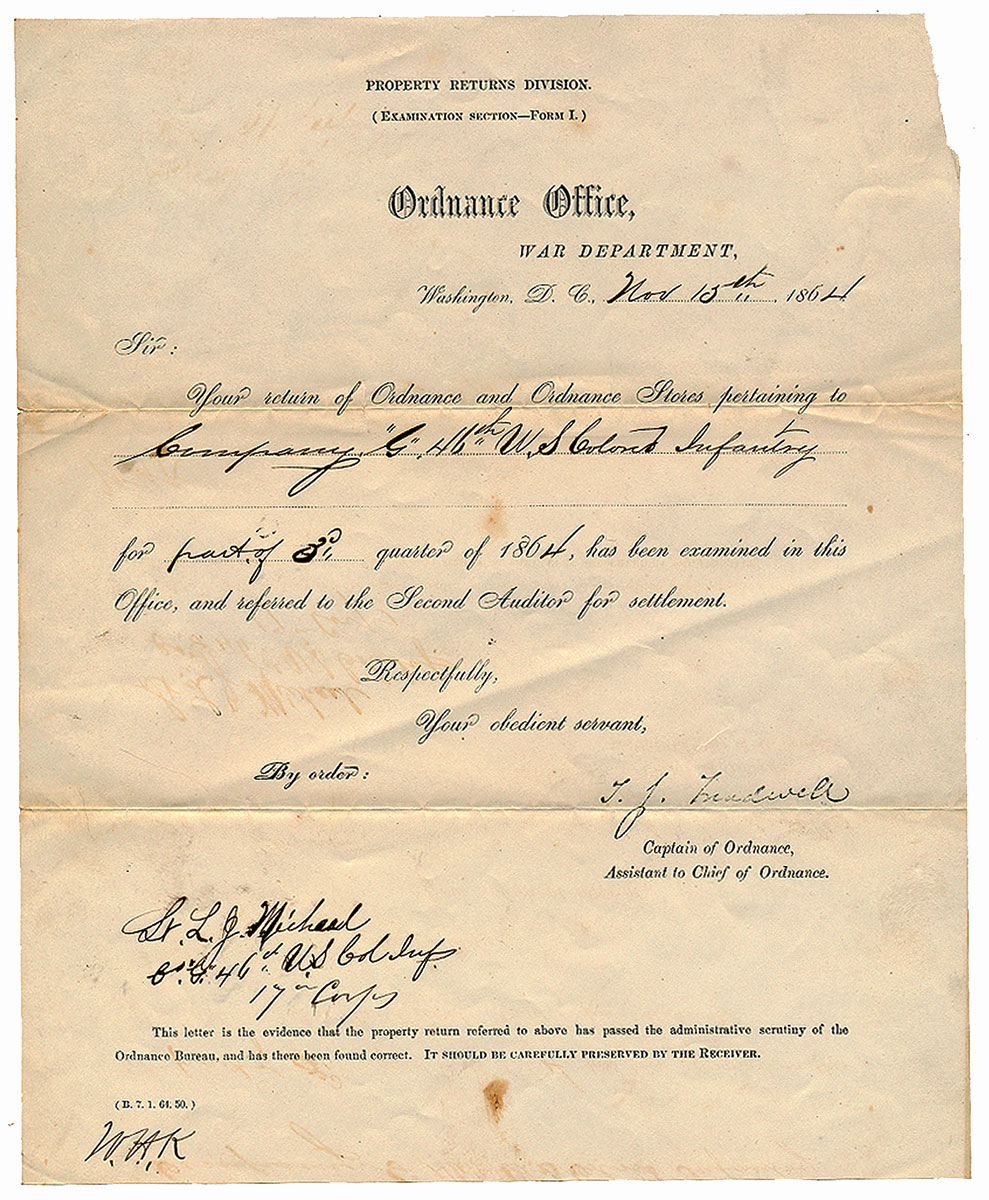 PROPERTY RETURNS DIVISION.
(EXAMINATION SECTION—FORM I.)
Ordnance Office,
WAR DEPARTMENT,
Washington, D. C., Nov 15th, 1864
Sir:
Your return of Ordnance and Ordnance Stores pertaining to
Company "G", 46th U,S Colored Infantry
for part of 3d, quarter of 1864, has been examined in this
Office, and referred to the Second Auditor for settlement.
Respectfully,
Your obedient servant,
By order:
T. J. Treadwell
Captain of Ordnance,
Assistant to Chief of Ordnance.
Lt. L. J. Michael
Co "G" 46th U.S Col Inf.
17th Corps
This letter is the evidence that the property return referred to above has passed the administrative scrutiny of the
Ordnance Bureau, and has there been found correct. IT SHOULD BE CAREFULLY PRESERVED BY THE RECEIVER.
(B. 7. 1. 64. 50.)
W.H.K